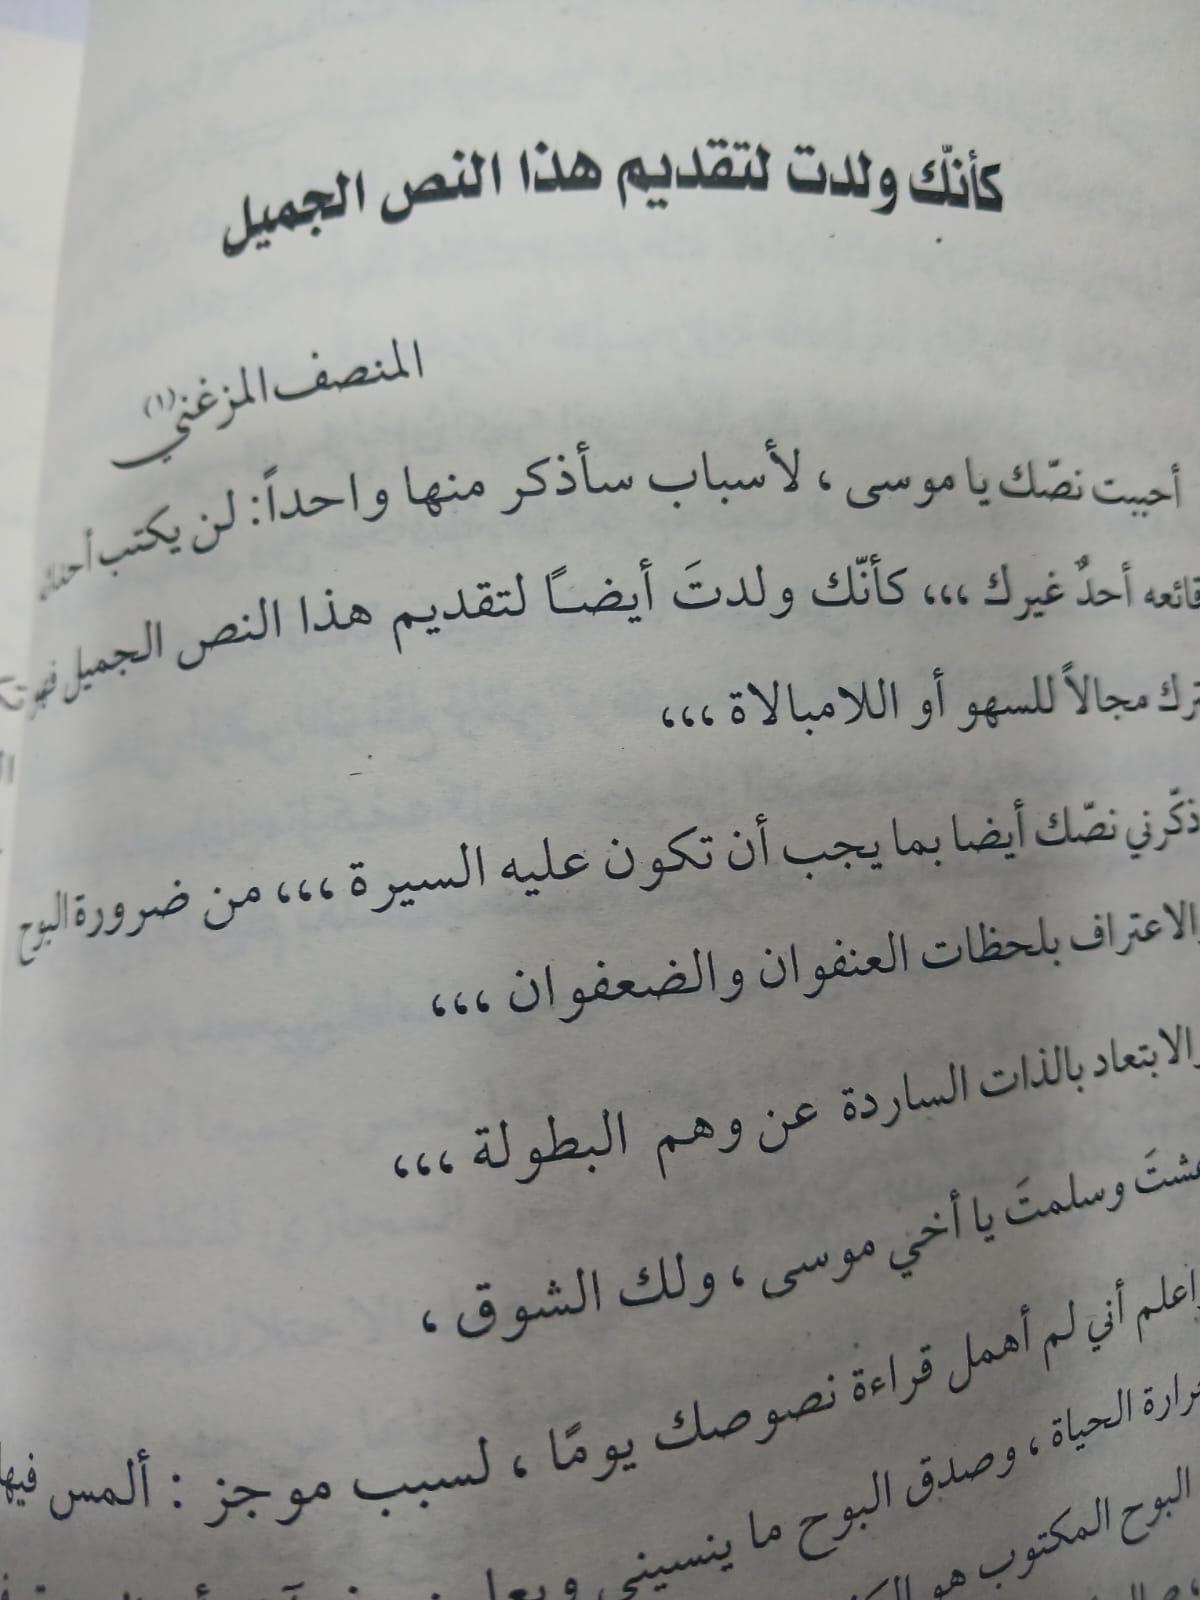 كأنّك ولدت لتقديم هذا النص الجميل
المنصف المزغني (١)
أحببت نصّك يا موسى ، لأسباب سأذكر منها واحداً: لن يكتب
أحدٌ غيرك ،،، كأنّك ولدتَ أيضاً لتقديم هذا النص الجميل فهو
مجالاً للسهو أو اللامبالاة ،،،
ذكّرني نصّك أيضا بما يجب أن تكون عليه السيرة ،،، من ضرورة البوح
والاعتراف بلحظات العنفوان والضعفوان ،،،
والابتعاد بالذات الساردة عن وهم البطولة ،،،
عشتَ وسلمتَ يا أخي موسى ، ولك الشوق ،
واعلم أني لم أهمل قراءة نصوصك يومًا ، لسبب موجز : ألمس فيها
الحياة ، وصدق البوح ما ينسيني
البوح المكتوب هو